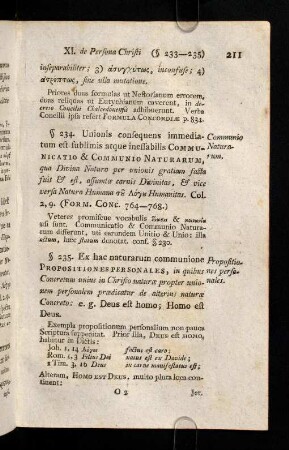 XI. de Persona Christi (§ 233—235) 211
inseparabiliter; 3) ἀσυγχύτως, inconfuse; 4)
ἀτρέπτως, sine ulla mutatione.
Priores duas formulas ut Nestorianum errorem,
duas reliquas ut Eutychianum caverent, in de
creto Concilii Chalcedonensis adhibuerunt. Verba
Concilii ipsis refert FORMULA CONCORDIÆ p. 834.
§ 234. Unionis consequens immedia- Communio
tum est sublimis atque ineffabilis COMMU- Natura-
NICATIO & COMMUNIO NATURARUM, rum.
qua Divina Natura per unionis gratiam facta
fuit & est, assumtæ carnis Divinitas, & vice
versa Natura Humana τοῦ Λόγου Humanitas. Col.
2, 9. (FORM. CONC. 764—768.)
Veteres promiscue vocabulis &
usi sunt. Communicatio & Communio Natura-
rum differunt, uti eorundem Unitio & Unio: illa
actum, hæc statum denotat. conf. § 230.
§ 235. Ex hac naturarum communione Propositio-
PROPOSITIONES PERSONALES, in quibus nes perso-
Concretum unius in Christo naturæ propter unio- nales.
nem personalem prædicatur de alterius naturæ
Concreto: e. g. Deus est homo; Homo est
Deus.
Exempla propositionum personalium non pauca
Scriptura suppeditat. Prior illa, DEUS est HOMO,
habetur in Dictis:
Joh. 1, 14 Λόγος factus est caro;
Rom. 1, 3 Filius Dei natus est ex Davide;
1 Tim. 3, 16 Deus in carne manifestatus est;
Alteram, HOMO EST DEUS, multo plura loca con-
tinent:
O 2 Jer.